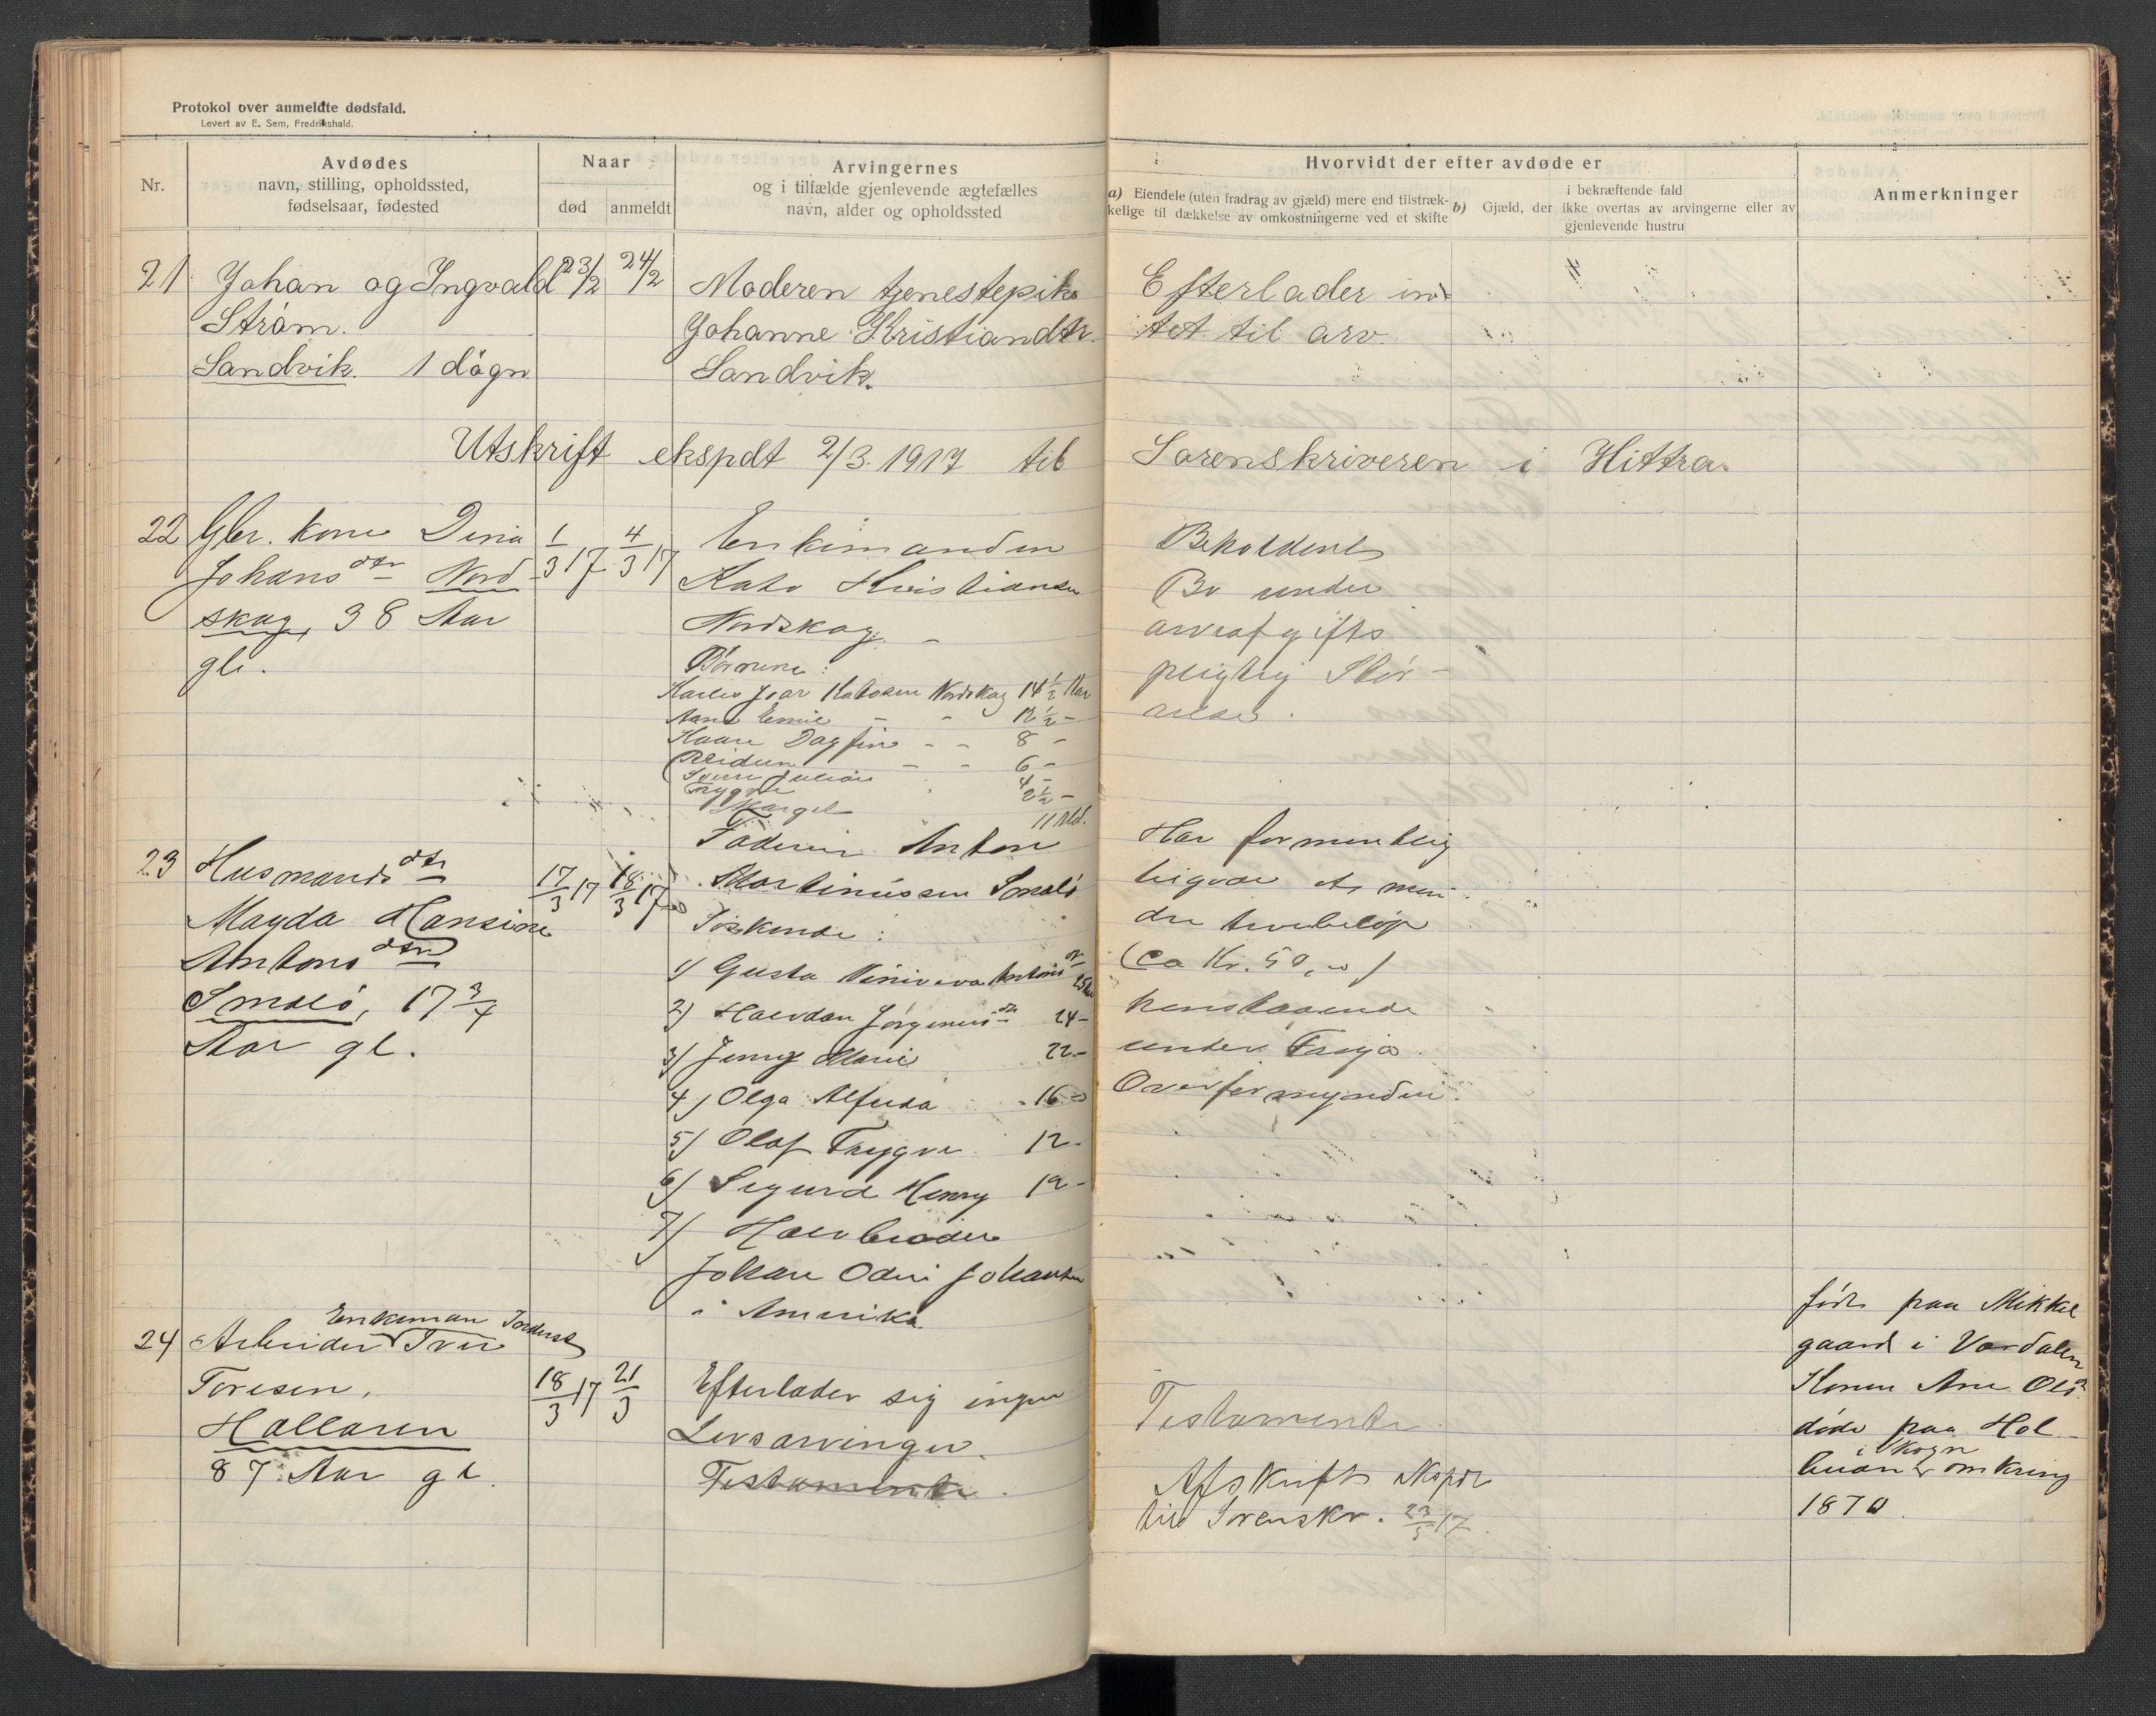 Protokol over anmeldte dødsfald.
Levert av E. Sem, Fredrikshald.
Nr.
Avdødes
navn, stilling, opholdssted,
fødselsaar, fødested
Naar
død
anmeldt
Arvingernes
og i tilfælde gjenlevende ægtefælles
navn, alder og opholdssted
Hvorvidt der efter avdøde er
a) Eiendele (uten fradrag av gjæld) mere end tilstræk-
kelige til dækkelse av omkostningerne ved et skifte
i bekræftende fald
b) Gjæld, der ikke overtas av arvingerne eller av
gjenlevende hustru
Anmerkninger
21 Johan og Ingvald 23/2 24/2
Strøm.
Sandvik. 1 døgn
Moderen tjenestepike
Johanne Kristiandtr.
Sandvik.
Efterlader int-
tet til arv.
Utskrift ekspdt 2/3. 1917 til Sorenskriveren i Hittra.
22 Gbr. kone Dina 1/3 17 4/3 17
Johansdtr Nord-
skag, 38 Aar
gl.
Enkemanden
Kato Kristiansen
Nordskag. -
Børnene:
Karles Joar Katosen Nordskag 14 1/2 Aar
Hans Emil - - 12 1/2 -
Kaare Dagfin - - 8 -
Reidun - - 6 -
Sverre Julian 4 -
Trygve 2 1/2 -
Margel 11 Md.
Beholdent
Bo under
arveafgifts
pligtig Stør-
relse.
23 Husmandsdtr 17/3 17 18/3 17
Magda Hansine
Antonsdtr
Smalø, 17 3/4
Aar gl.
Faderen Anton
Martinussen Smalø
Søskende:
1) Gusta Antonsdtr 25 Aar
2) Halvdan Jørginus 24 -
3) Jenny Marie 22 -
4) Olga Alfrida 16 -
5) Olaf Trygve 12 -
6) Sigurd Henry 12 -
7) Halvbroder
Johan Odin Johansen
i Amerika.
Har formentlig
ligget et min-
dre arvebeløp
(ca Kr. 50,00)
henstaaende
under Frøya
Overformynderi.
24 Arbeider Enkeman Iver 18/3 17 21/3
Toresen,
Hallaren
87 Aar gl.
Efterlader sig ingen
Livsarvinger.
Testamente.
Testamente.
Afskrift ekspdt
til Sorenskr. 23/5 17.
født paa Mikkel
gaard i Værdalen
Konen Ane Olsdtr
døde paa Hol-
buan i Skogn omkring
1870.